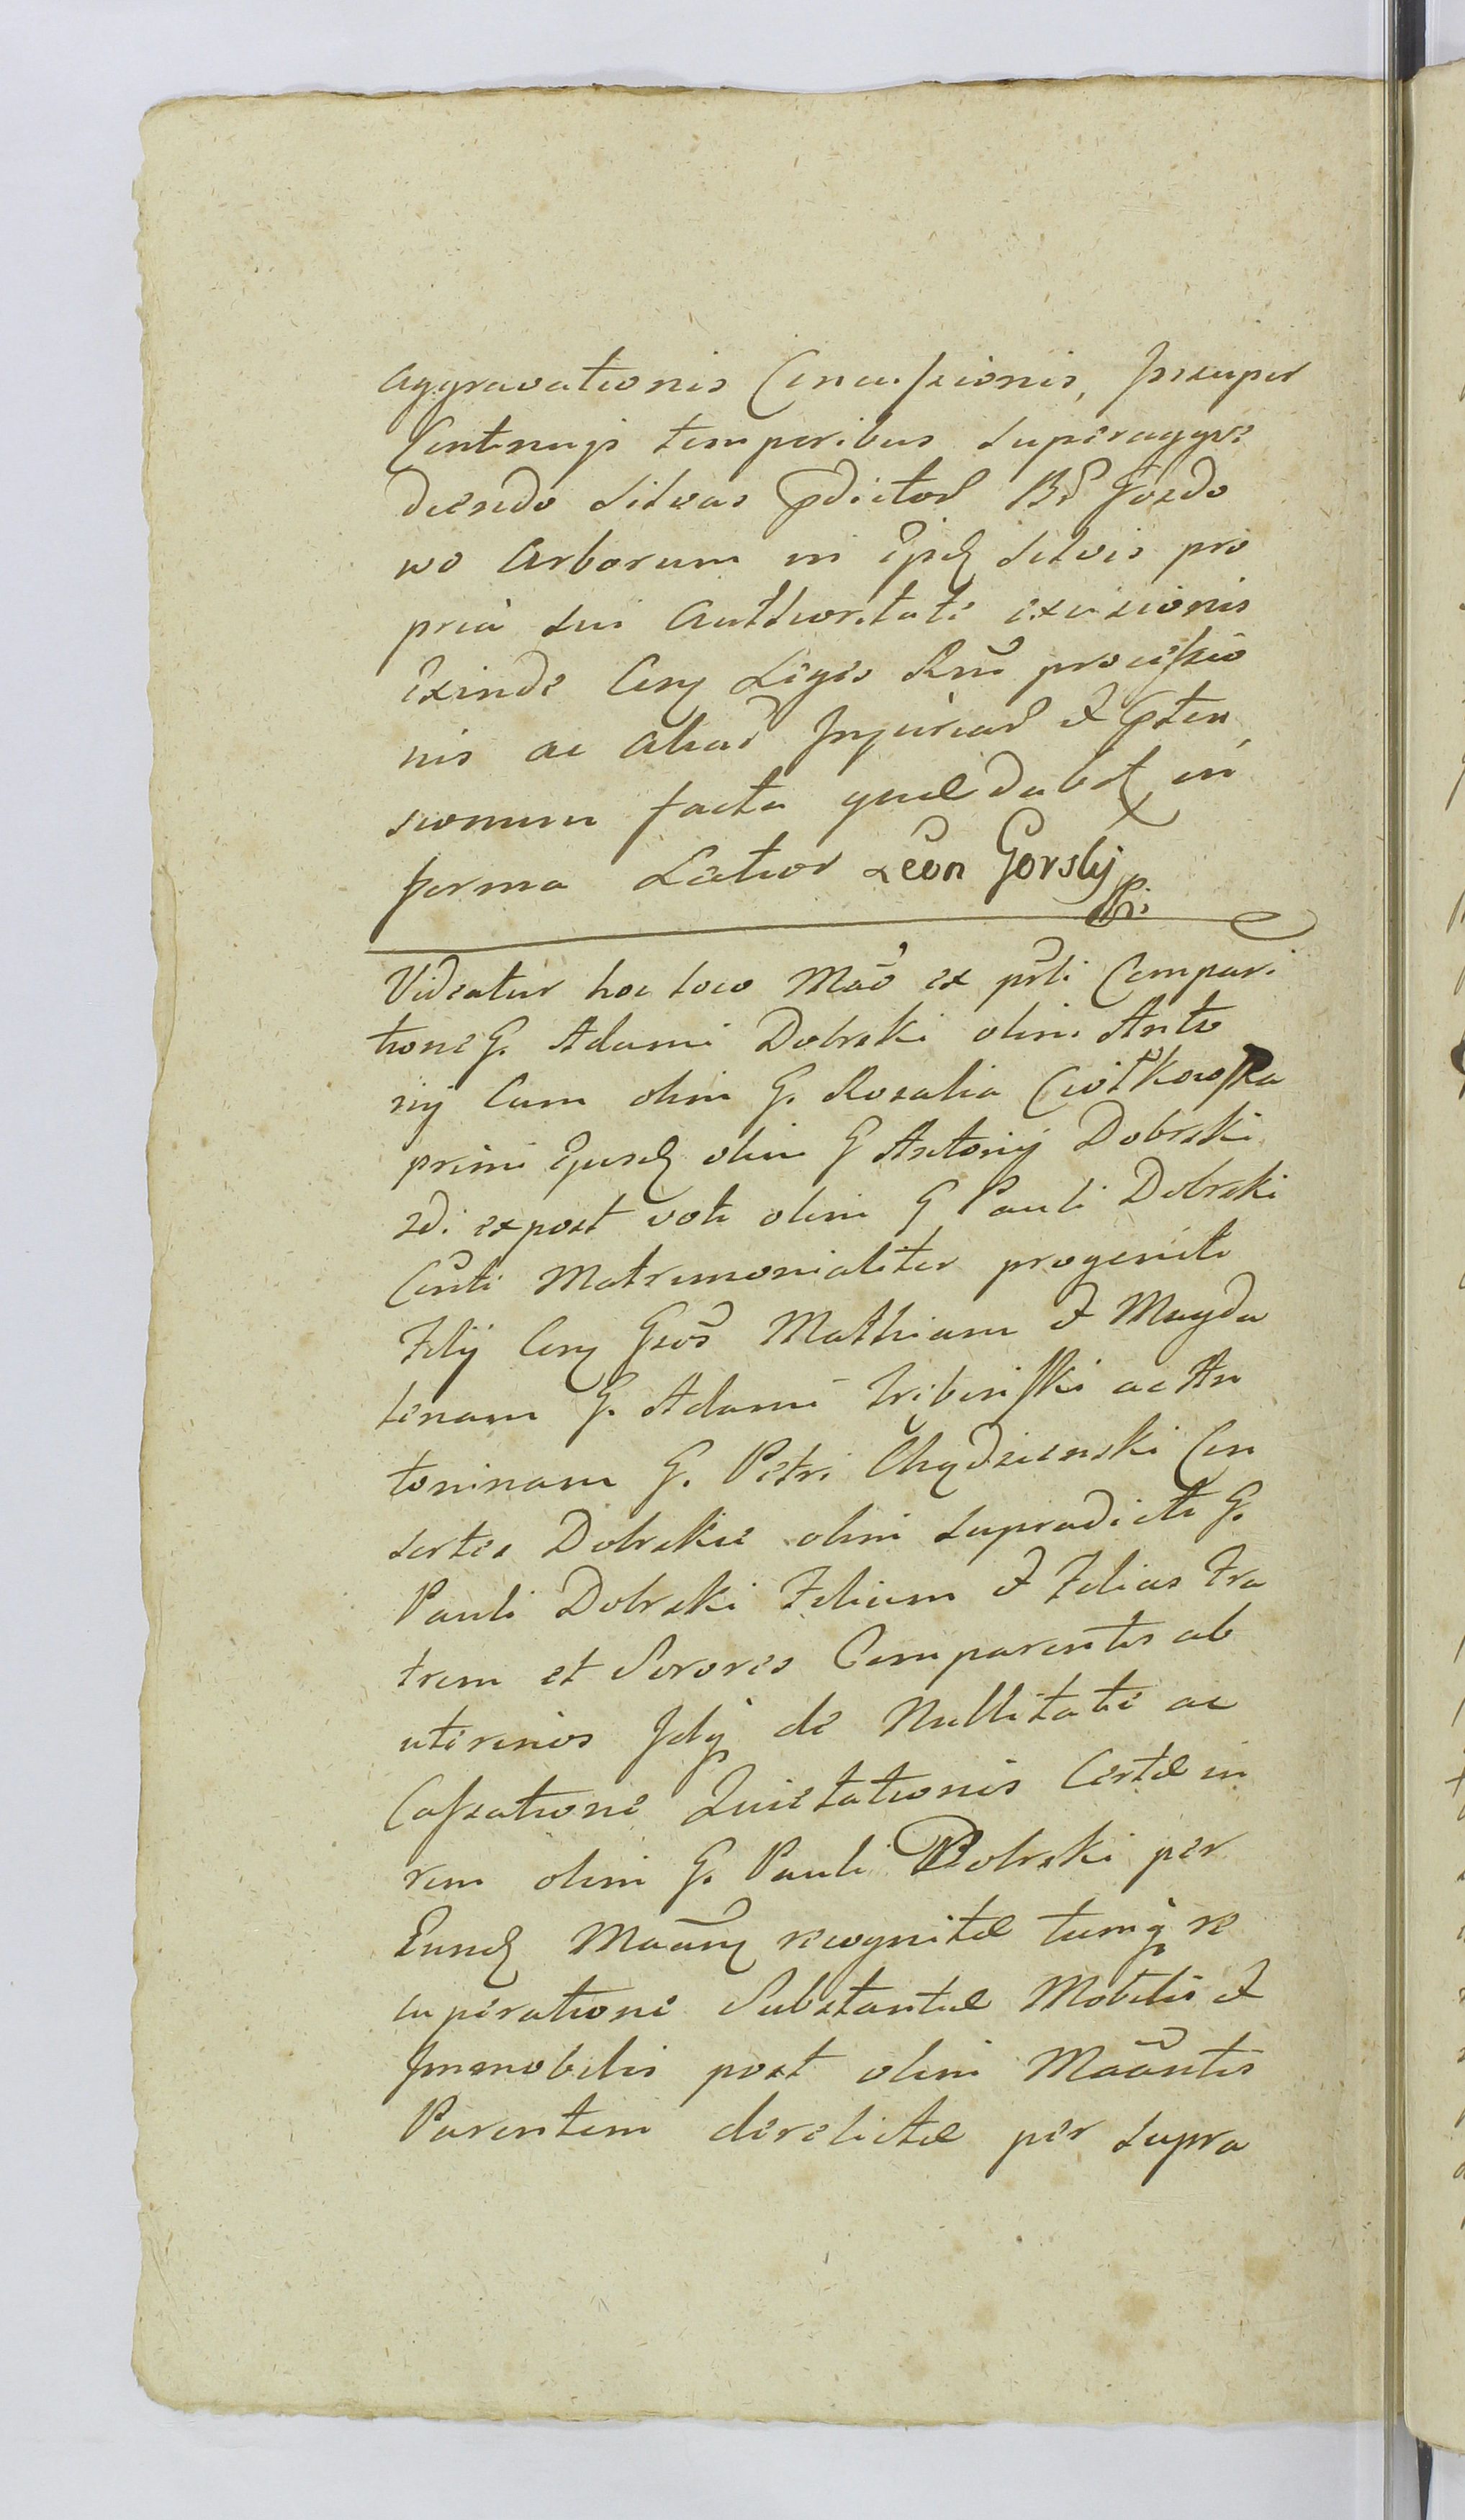 aggravationis Concussionis, Insuper
Continuis temporibus superaggre
diendo silvas pdictor Br Gozdo
wo Arborum in Ipsis silvis pro
pria sui Authoritate excisionis
Exinde Cerq Legis Rni processio
nis ac aliar Injuriar & pten
sionum facta quae dabit in
forma Latior Leon Gorskij
Videatur hoc loco Mao ex psti Compari
tione G. Adami Dobrski olim Anto
nij Cum olim G. Rosalia Cwiłkowska
primi Ejusd olim G Antonij Dobrski
2di expost voti olim G Pauli Dobrski
Csti Matrimonialiter progeniti
Filij Cerq Gsos Mathiam & Magda
lenam G. Adami ac An
toninam G. Petri Chądzienski Con
sortes Dobrskie olim supradicti G.
Pauli Dobrski Filium & Filias Fra
trem et Sorores Comparentis ab
uterinos Idq de Nullitate ac
Cassatione Quietationis Certae in
rem olim G. Pauli Dobrski per
Eund Maanq recognitae tumq re
cuperatione Substantiae Mobilis &
Immobilis post olim Maantis
Parentem derelictae per supra